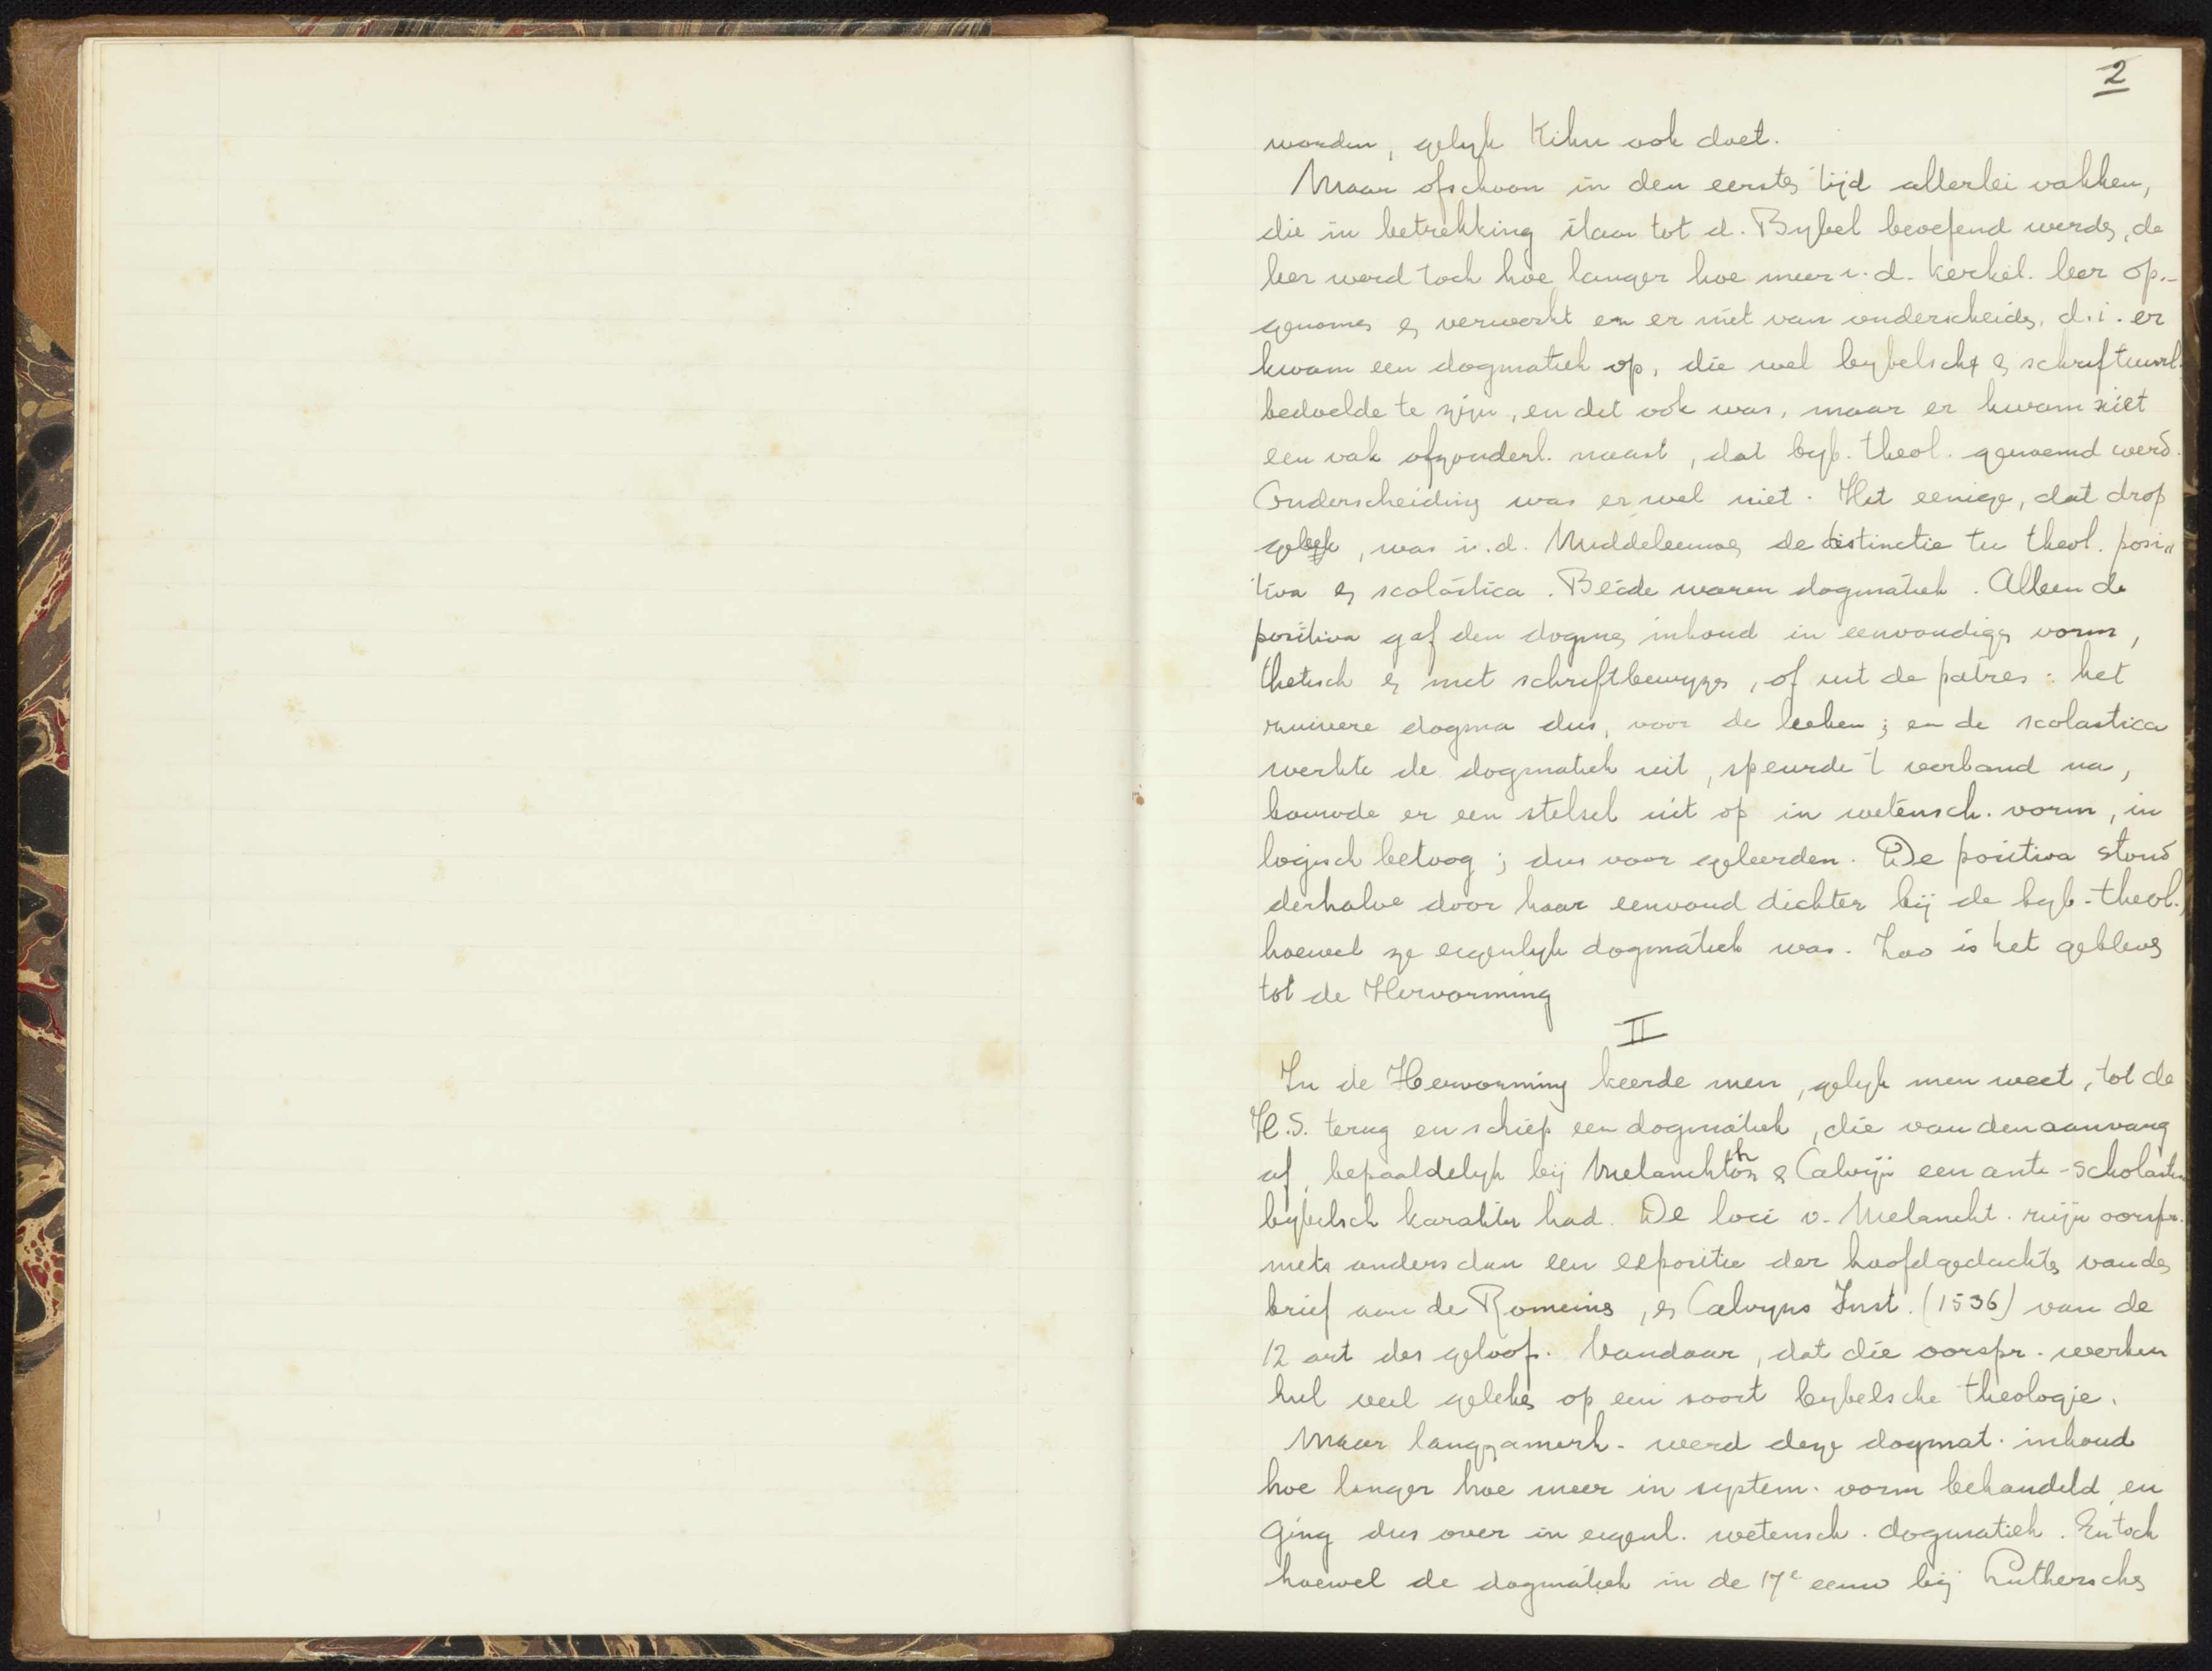 2
worden, gelyk Kihn ook doet.
Maar ofschoon in den eersten tijd allerlei vakken,
die in betrekking staan tot d. Bybel beoefend werden, de
leer werd toch hoe langer hoe meer i. d. kerkel. leer op-
genomen en verwerkt en er niet van onderscheiden. d.i. er
kwam een dogmatiek op, die wel bybelsch en schriftuurl.
bedoelde te zijn, en dit ook was, maar er kwam niet
een vak afzonderl. naast, dat byb. theol. genoemd werd.
Onderscheiding was er wel niet. Het eenige, dat drop
geleek, was i. d. Middeleeuwen de distinctie tu theol. posi„
tiva en scolastica. Beide waren dogmatiek. Alleen de
positiva gaf den dogmen inhoud in eenvoudigen vorm,
thetisch en met schriftbewyzen, of uit de patres: het
zuivere dogma dus, voor de leeken; en de scolastica
werkte de dogmatiek uit, speurde 't verband na,
bouwde er een stelsel uit op in wetensch. vorm, in
logisch betoog; dus voor geleerden. De positiva stond
derhalve door haar eenvoud dichter bij de byb. theol.,
hoewel ze eigenlyk dogmatiek was. Zoo is het gebleven
tot de Hervorming
II
In de Hervorming keerde men, gelyk men weet, tot de
H.S. terug en schiep een dogmatiek, die van den aanvang
af, bepaaldelyk bij Melanchton & Calvijn een anti-scholastn
bybelsch karakter had. De loci v. Melancht. zijn oorspr.
niets anders dan een expositie der hoofdgedachten van den
brief aan de Romeinen, en Calvyns Inst. (1536) van de
12 art des geloof. Vandaar, dat die oorspr. werken
heel veel geleken op een soort bybelsche theologie.
Maar langzamerh. werd deze dogmat. inhoud
hoe langer hoe meer in system. vorm behandeld en
ging dus over in eigenl. wetensch. dogmatiek. En toch
hoewel de dogmatiek in de 17e eeuw bij Lutherschen